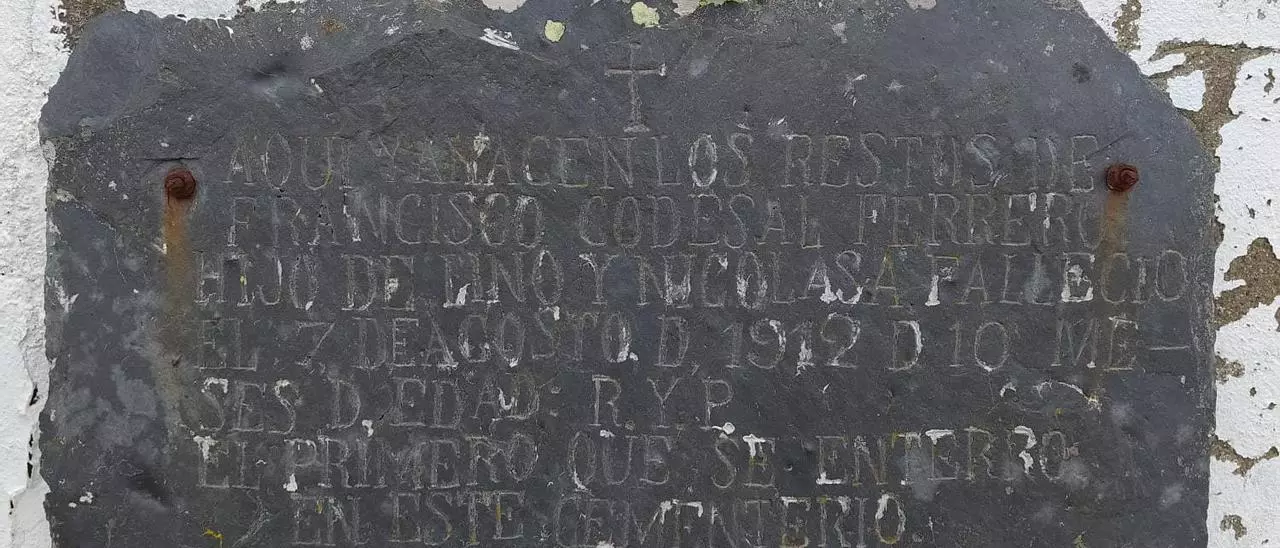 AQUI YAYACEN LOS RESTOS DE
FRANCISCO CODESAL FERRERO
HIJO DE PINO Y NICOLASA FALLECIO
EL 7, DE AGOSTO D, 1912 D 10 ME—
SES D. EDAD. R.Y.P.
EL PRIMERO QUE SE ENTERRO
EN ESTE CEMENTERIO.